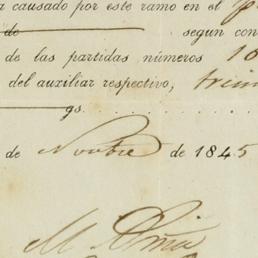 a causado por este ramo en el
de segun con
de las partidas números 10
del auxiliar respectivo,
gs.
de Novbre de 1845